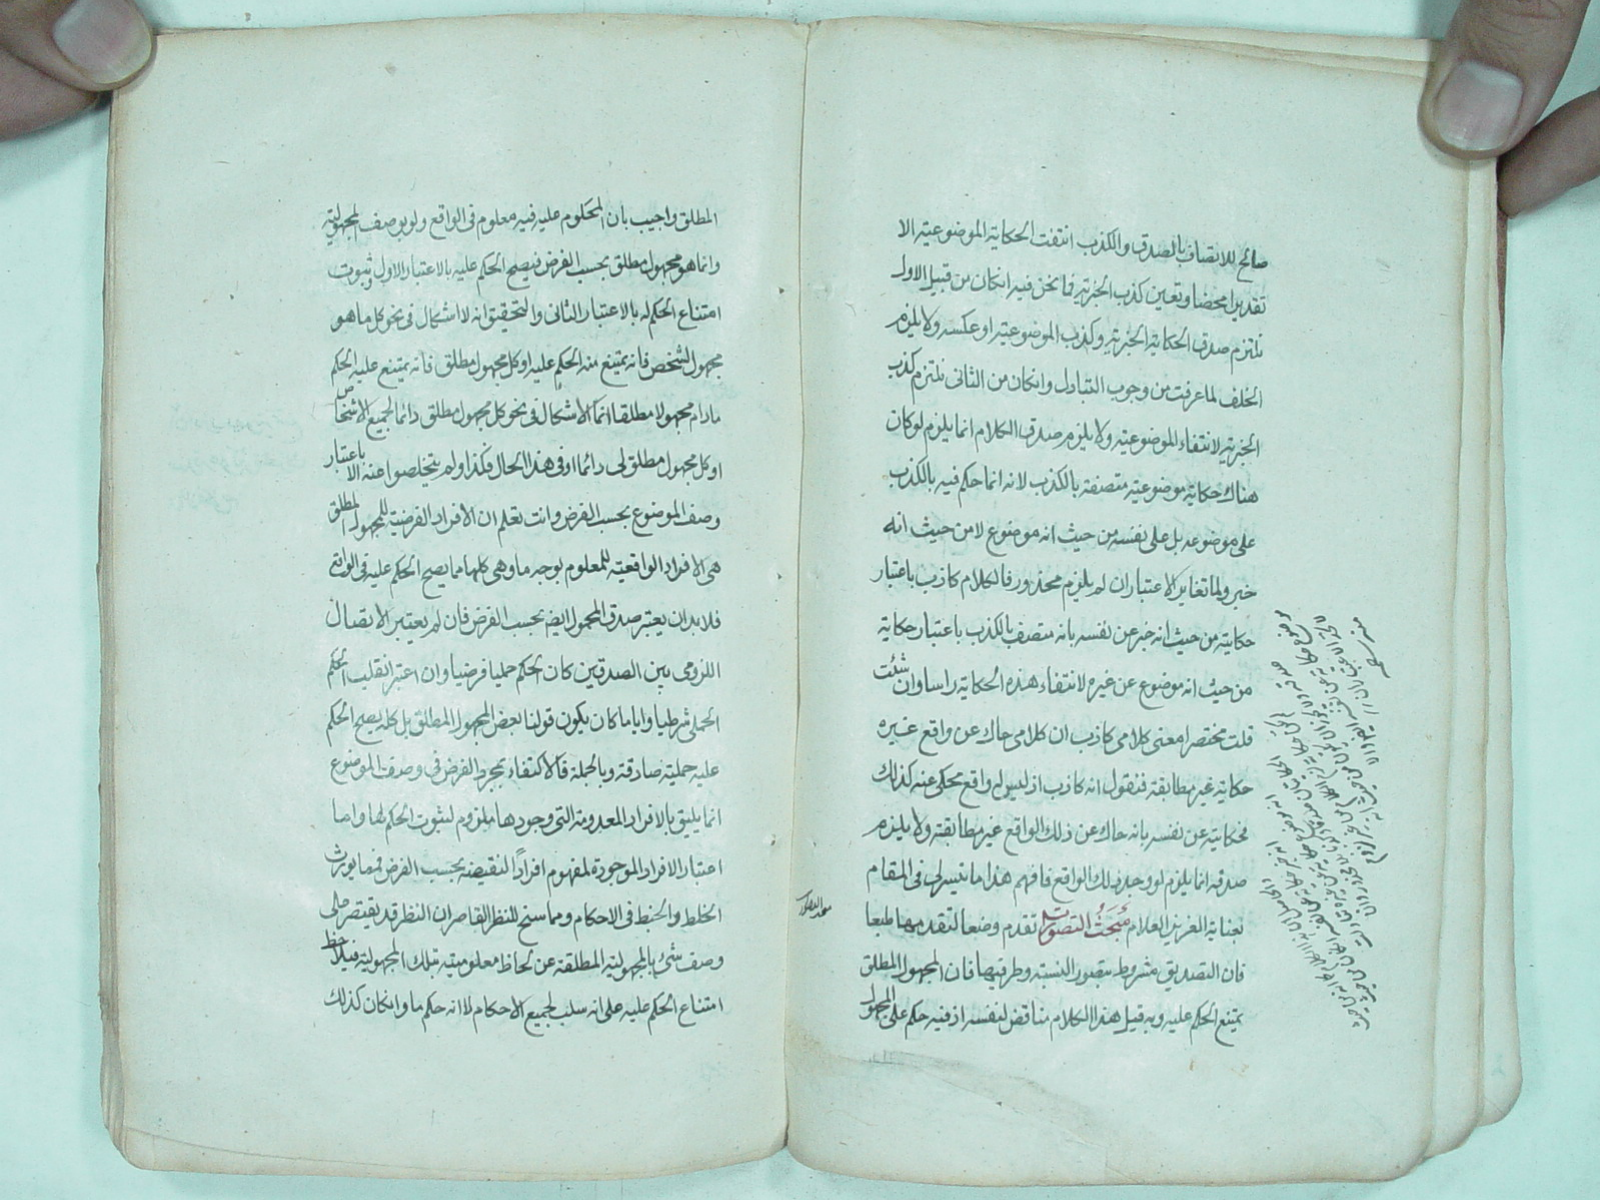 صالح للاتصاف بالصدق والكذب انتفت الحكاية الموضوعية الا
تقديرا محضا وتعين كذب الخبرية فما نحن فيه ان كان من قبيل الاول
نلتزم صدق الحكاية الخبرية وكذب الموضوعية او عكسه ولا يلزم
الخلف لما عرفت من وجوب التبادل وان كان من الثانى نلتزم كذب
الخبرية لانتفاء الموضوعية ولا يلزم صدق الكلام انما يلزم لو كان
هناك حكاية موضوعية متصفة بالكذب لانه انما حكم فيه بالكذب
على موضوعه بل على نفسه من حيث انه موضوع لا من حيث انه
خبر ولما تغاير الاعتباران لم يلزم محذور فالكلام كاذب باعتبار
حكايته من حيث انه خبر عن نفسه بانه متصف بالكذب باعتبار حكاية
من حيث انه موضوع عن غيره لانتفاء هذه الحكاية راسا وان شئت
قلت مختصرا معنى كلامى كاذب ان كلامى حاك عن واقع غيره
حكاية غير مطابقة فنقول انه كاذب اذ ليس له واقع محكى عنه كذلك
فحكايته عن نفسه بانه حاك عن ذلك الواقع غير مطابقة ولا يلزم
صدقه انما يلزم لو وجد ذلك الواقع فافهم هذا ما تيسر لى فى المقام
بعناية العزيز العلام مبحث التصورات تقدم وضعا لتقدمها طبعا
فان التصديق مشروط بتصور النسبة وطرفيها فان المجهول المطلق
يمتنع الحكم عليه وبه قيل هذا الكلام مناقض لنفسه اذ فيه حكم على المجهول
المطلق واجيب بان المحكوم عليه فيه معلوم فى الواقع ولو بوصف المجهولية
وانما هو مجهول مطلق بحسب الفرض فيصح الحكم عليه بالاعتبار الاول وثبوت
امتناع الحكم له بالاعتبار الثانى والتحقيق انه لا اشكال فى نحو كل ما هو
مجهول لشخص فانه يمتنع منه الحكم عليه او كل مجهول مطلق فانه يمتنع عليه الحكم
مادام مجهولا مطلقا انما الاشكال فى نحو كل مجهول مطلق دائما لجميع الاشخاص
او كل مجهول مطلق لى دائما او فى هذا الحال فكذا ولم يتخلصوا عنه الا باعتبار
وصف الموضوع بحسب الفرض وانت تعلم ان الافراد الفرضية للمجهول المطلق
هى الافراد الواقعية للمعلوم بوجه ما وهى كلها مما يصح الحكم عليه فى الواقع
فلا بد ان يعتبر صدق المحمول ايضا بحسب الفرض فان لم يعتبر الاتصال
اللزومى بين الصدقين كان الحكم حمليا فرضيا وان اعتبر انقلب الحكم
الحملى شرطيا وايا ما كان يكون قولنا بعض المجهول المطلق بل كله يصح الحكم
عليه حملية صادقة وبالجملة فالاكتفاء بمجرد الفرض فى وصف الموضوع
انما يليق بالافراد المعدومة التى وجودها ملزوم لثبوت الحكم لها واما
اعتبار الافراد الموجودة لمفهوم افرادا لنقيضه بحسب الفرض فمما يورث
الخلط والخبط فى الاحكام ومما سنح للنظر القاصر ان النظر قد يقتصر على
وصف شئ بالمجهولية المطلقة عن لحاظ معلوميته بتلك المجهولية فيلاحظ
امتناع الحكم عليه على انه سلب لجميع الاحكام لا انه حكم ما وان كان كذلك